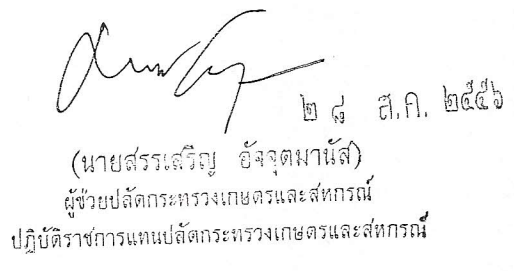 ๒๘ ส.ค. ๒๕๕๖
(นายสรรเสริญ อัจจุตมานัส)
ผู้ช่วยปลัดกระทรวงเกษตรและสหกรณ์
ปฏิบัติราชการแทนปลัดกระทรวงเกษตรและสหกรณ์